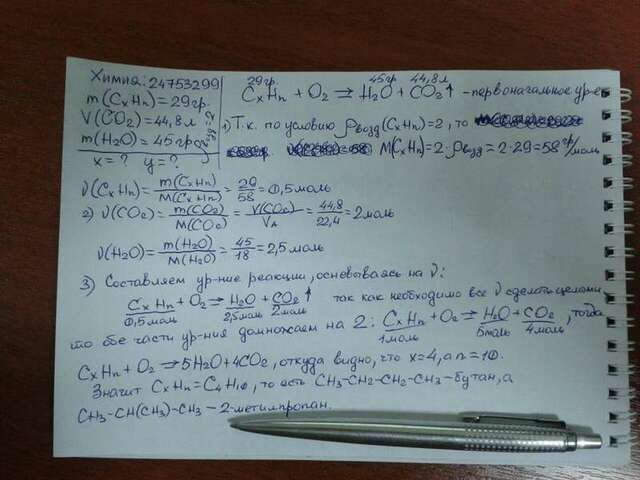 Химия: 24753299
m(CxHn) = 29гр.
V(CO2) = 44,8л
m(H2O) = 45гр
x = ? y = ?
29гр. 45гр 44,8л
CxHn + O2 → H2O + CO2↑ - первоначальное ур-е
1) Т.к. по условию ρвозд(CxHn)=2, то
M(CxHn)=2·ρвозд=2·29=58гр/моль
ν(CxHn) = m(CxHn)/M(CxHn) = 29/58 = 0,5моль
2) ν(CO2) = m(CO2)/M(CO2) = V(CO2)/VA = 44,8/22,4 = 2моль
ν(H2O) = m(H2O)/M(H2O) = 45/18 = 2,5моль
3) Составляем ур-ние реакции, основываясь на ν:
CxHn + O2 → H2O + CO2↑ так как необходимо все ν сделать целыми
0,5моль 2,5моль 2моль
то обе части ур-ния домножаем на 2: CxHn + O2 → H2O + CO2, тогда
1моль 5моль 4моль
CxHn + O2 → 5H2O + 4CO2, откуда видно, что x=4, а n=10.
Значит CxHn = C4H10, то есть CH3-CH2-CH2-CH3 - бутан, а
CH3-CH(CH3)-CH3 - 2-метилпропан.